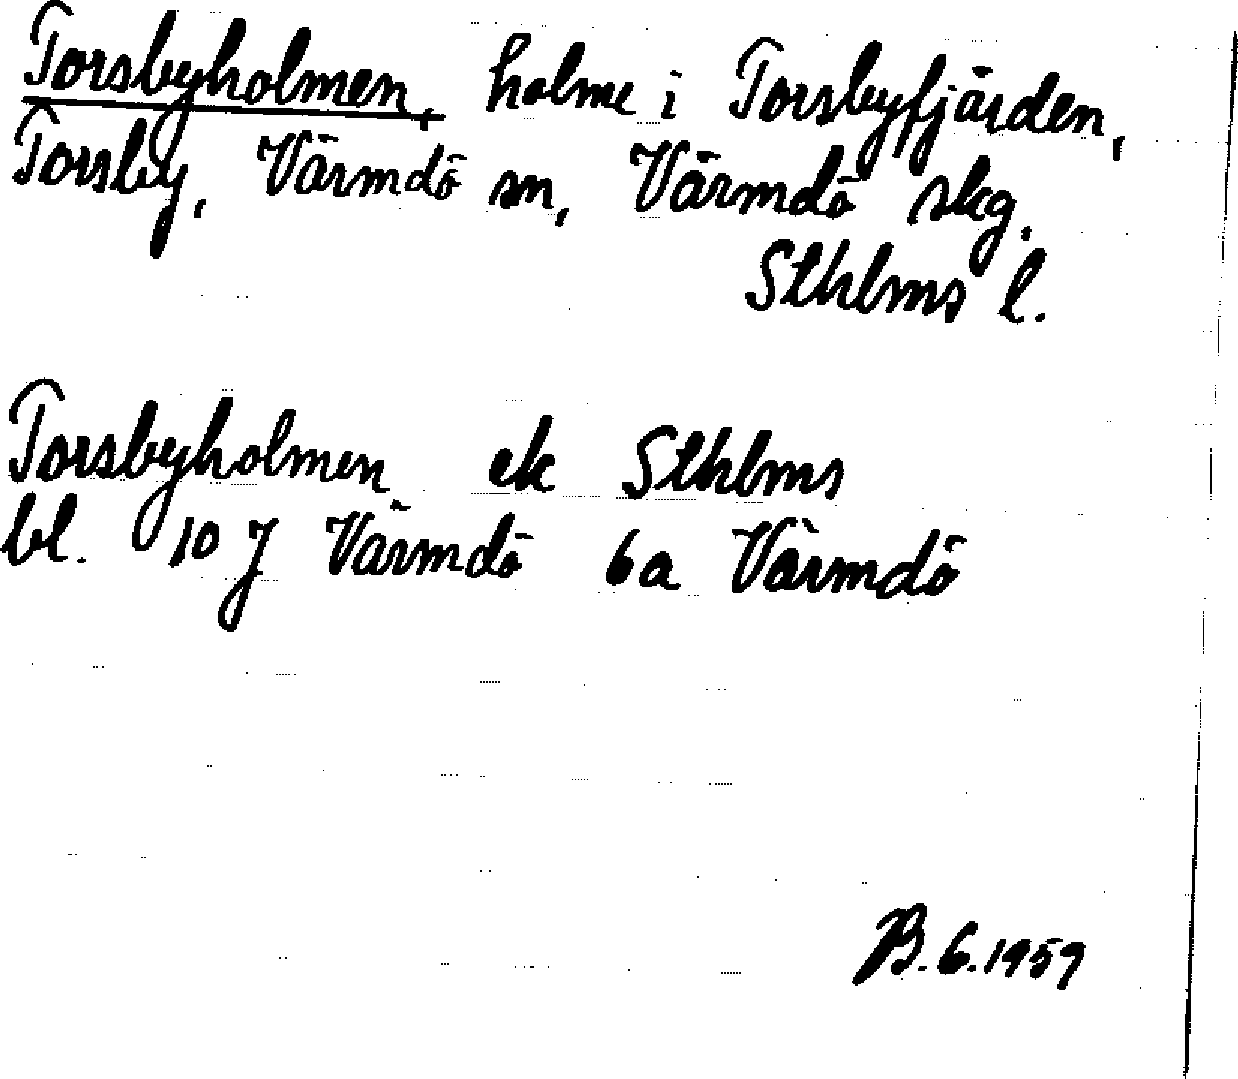 Torsbyholmen, holme i Torsbyfjärden,
Torsby, Värmdö sn, Värmdö skg,
Sthlms l.
Torsbyholmen ek Sthlms
bl. 10 J Värmdö 6a Värmdö
B.G.1959